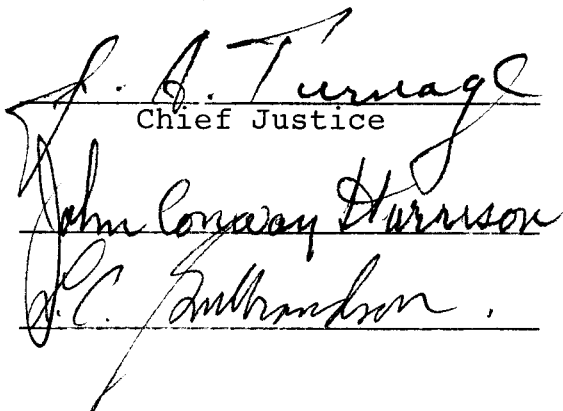 J. A. Turnage
Chief Justice
John Conway Harrison
L.C. Gulbrandson.